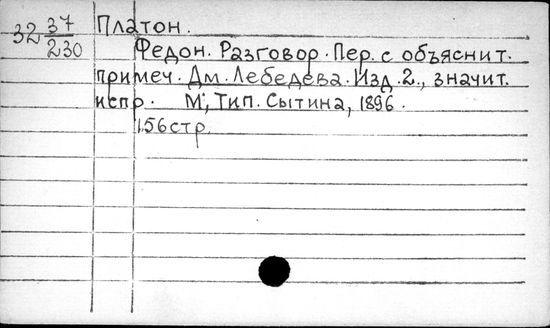 32 37/230 Платон.
Федон. Разговор. Пер. с объяснит.
примеч. Дм. Лебедева. Изд. 2., значит.
испр. М., Тип. Сытина, 1896.
156 стр.